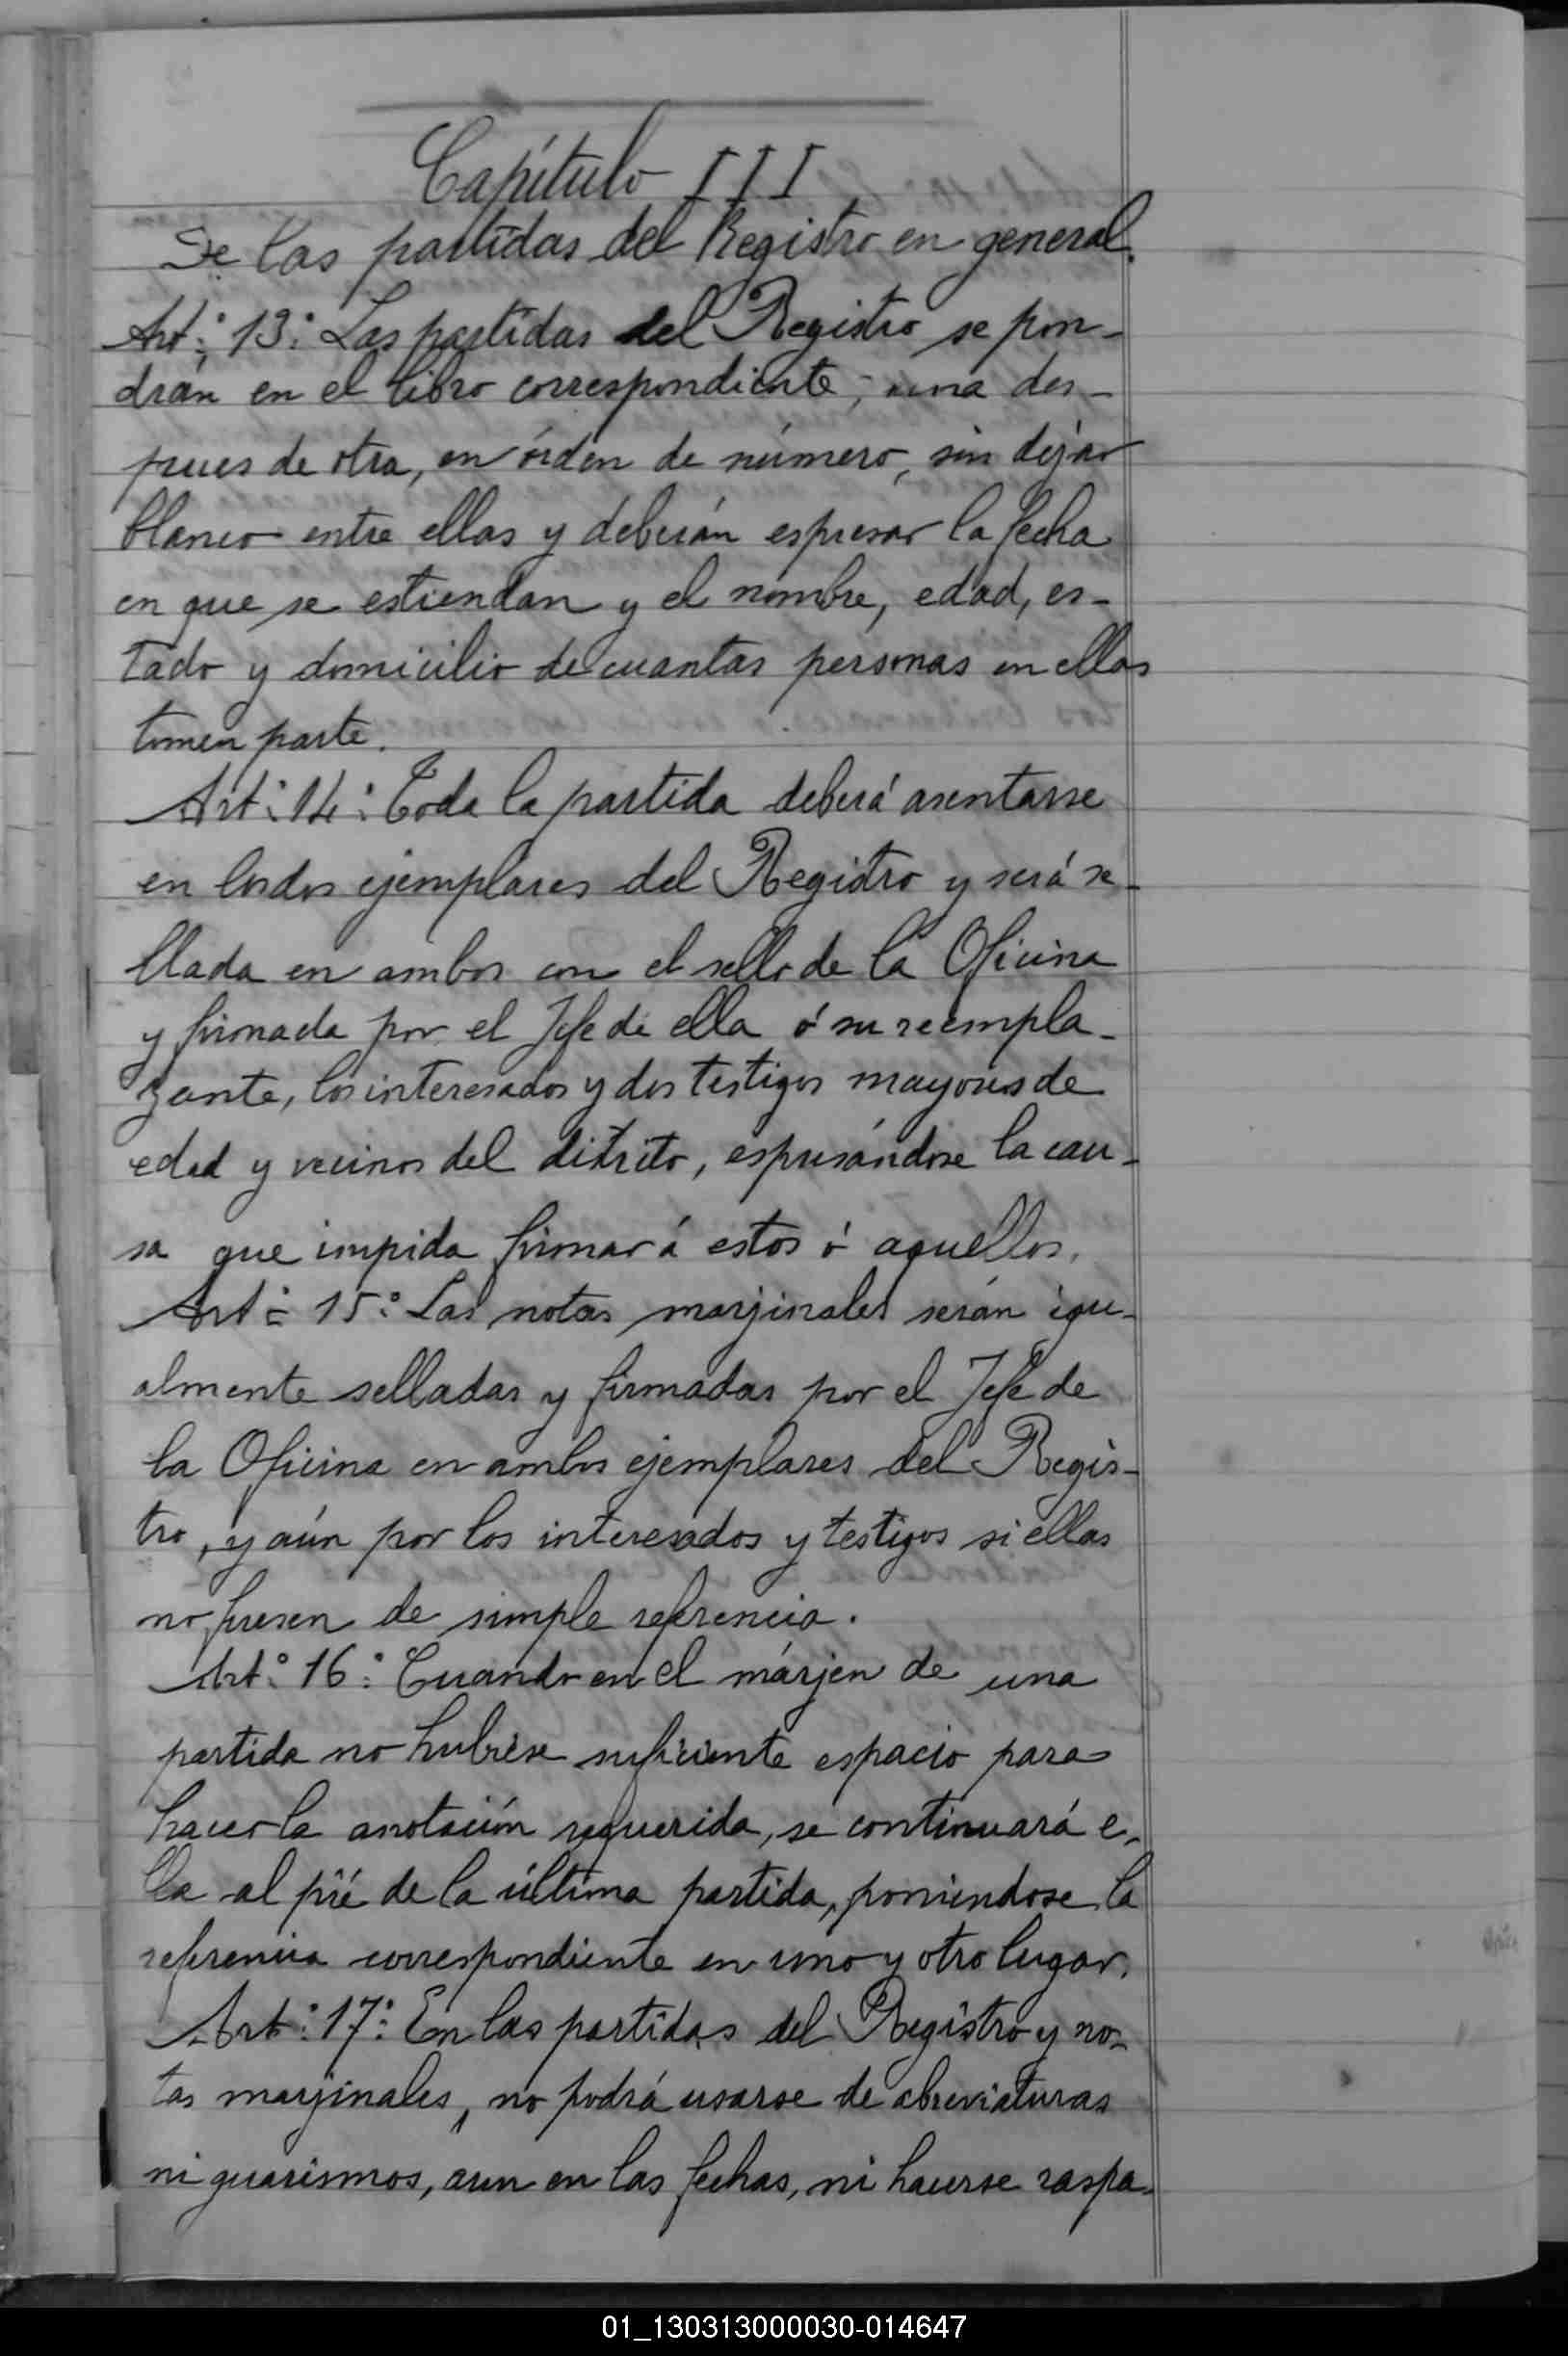 Capítulo III
De las partidas del Registro en general.
Art.º 13.º Las partidas del Registro se pon-
drán en el libro correspondiente, una des-
pues de otra, en órden de número, sin dejar
blanco entre ellas y deberán espresar la fecha
en que se estiendan y el nombre, edad, es-
tado y domicilio de cuantas personas en ellas
tomen parte.
Art.º 14.º Toda la partida deberá asentarse
en los dos ejemplares del Registro y será se-
llada en ambos con el sello de la Oficina
y firmada por el Jefe de ella ó su reempla-
zante, los interesados y dos testigos mayores de
edad y vecinos del ditrito, espresándose la cau-
sa que impida firmar á estos ó aquellos.
Art.º 15.º Las notas marjinales serán igu-
almente selladas y firmadas por el Jefe de
la Oficina en ambos ejemplares del Regis-
tro, y aún por los interesados y testigos si ellas
no fuesen de simple referencia.
Art.º 16.º Cuando en el márjen de una
partida no hubiese suficiente espacio para
hacer la anotación requerida, se continuará e-
lla al pié de la última partida, poniendose la
referencia correspondiente en uno y otro lugar.
Art.º 17.º En las partidas del Registro y no-
tas marjinales, no podrá usarse de abreviaturas
ni guarismos, aun en las fechas, ni hacerse raspa-
01_130313000030-014647